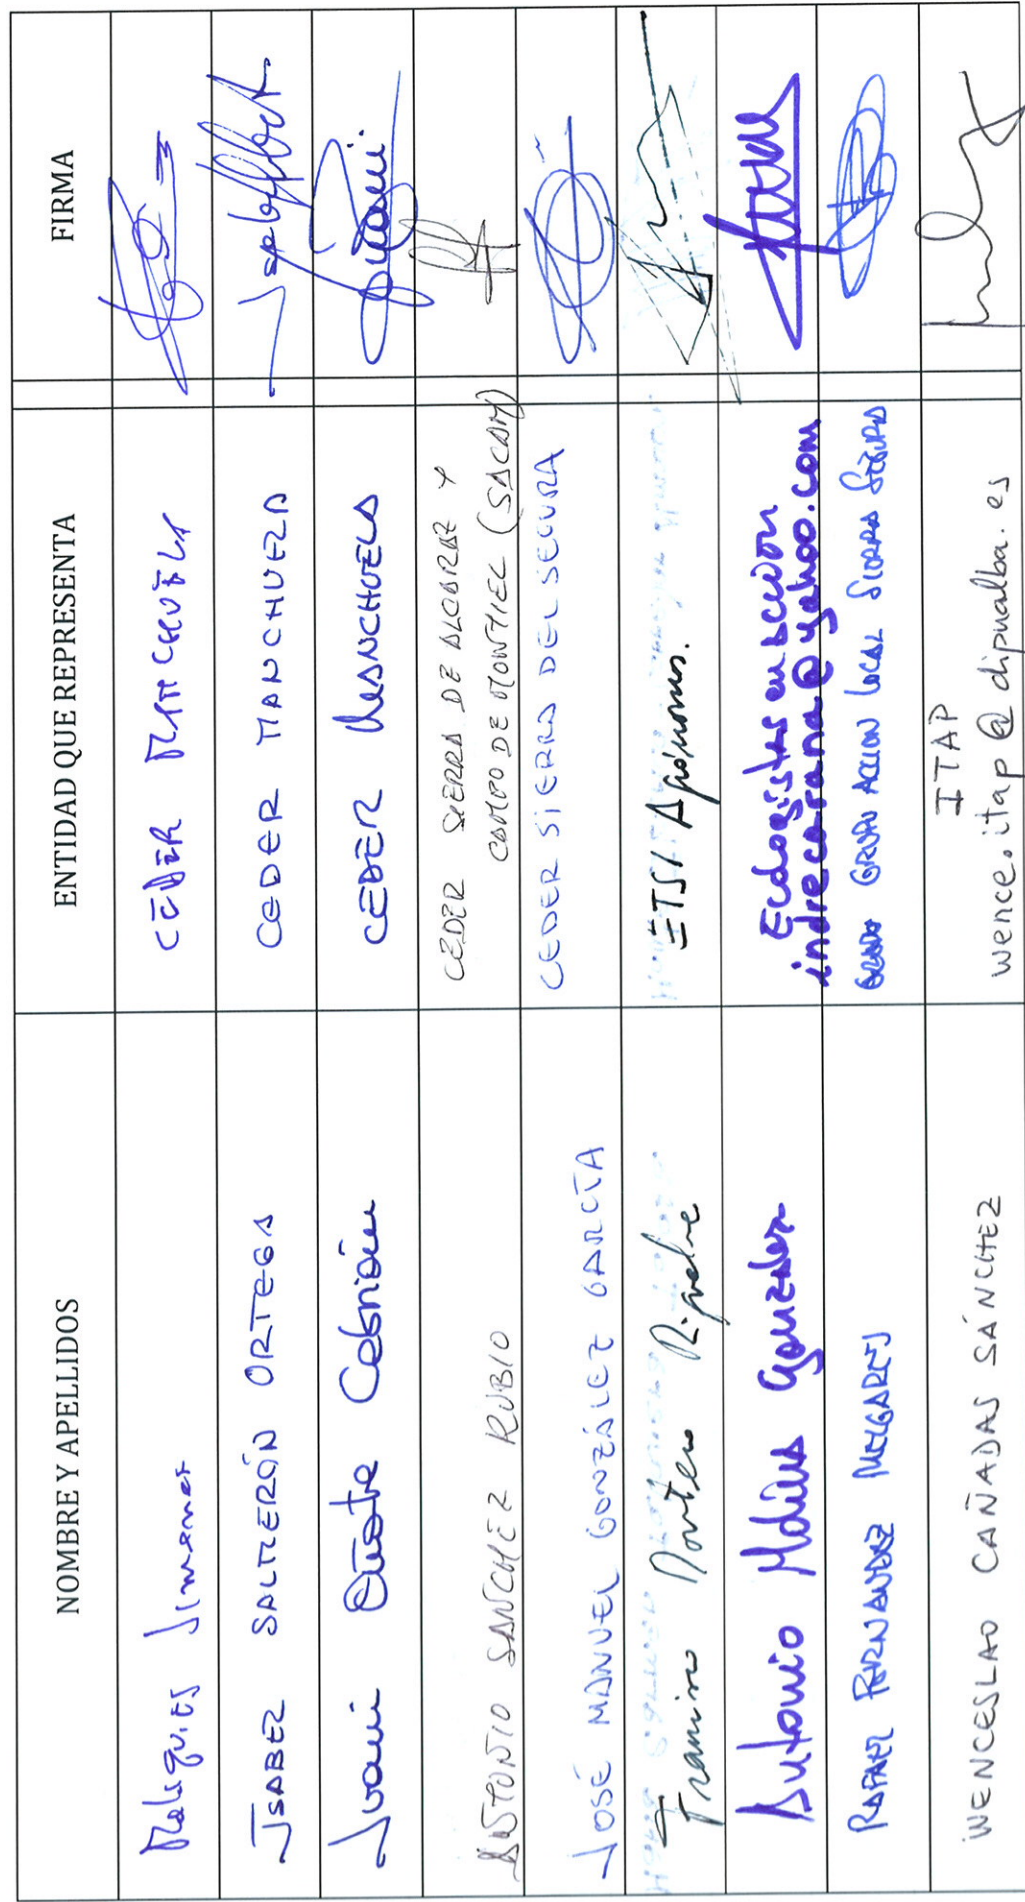 NOMBRE Y APELLIDOS ENTIDAD QUE REPRESENTA FIRMA
Malaquies Jimenez CEDER MANCHUELA
ISABEL SALMERÓN ORTEGA CEDER MANCHUELA
Juani Oñate Cebrián CEDER MANCHUELA
ANTONIO SANCHEZ RUBIO CEDER SIERRA DE ALCARAZ Y
CAMPO DE MONTIEL (SACAM)
JOSÉ MANUEL GONZÁLEZ GARCÍA CEDER SIERRA DEL SEGURA
Francisco Montero Riquelme ETSI Agrónomos.
Antonio Molina González Ecologistas en acción
indrecorana@yahoo.com
RAFAEL FERNANDEZ MELGARES GRUPO ACCION LOCAL SIERRA SEGURA
WENCESLAO CAÑADAS SÁNCHEZ ITAP
wence.itap@dipualba.es